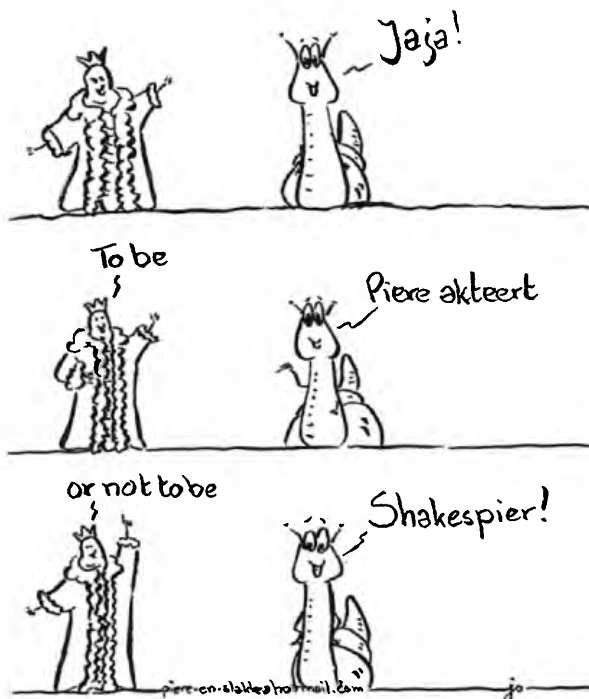 Jaja!
To be
Piere akteert
or not to be
Shakespier!
piere-en-slak@hotmail.com
jo